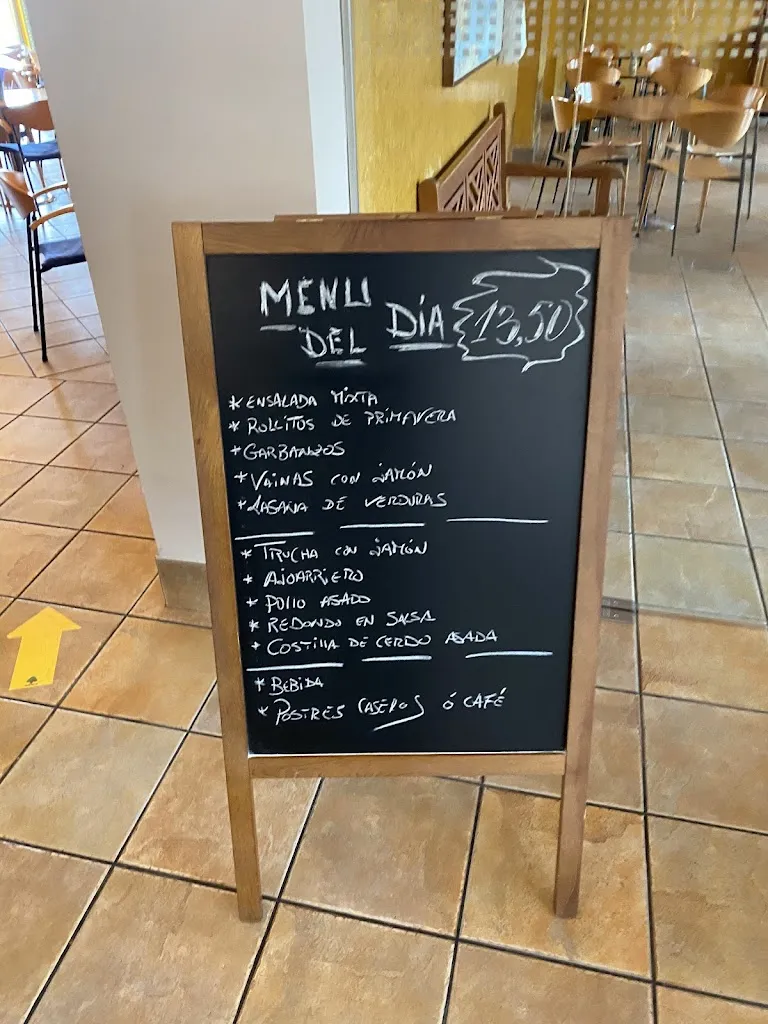 MENU
DEL DÍA 13,50
* ENSALADA MIXTA
* ROLLITOS DE PRIMAVERA
* GARBANZOS
* VAINAS CON JAMÓN
* LASAÑA DE VERDURAS
* TRUCHA CON JAMÓN
* AJOARRIERO
* POLLO ASADO
* REDONDO EN SALSA
* COSTILLA DE CERDO ASADA
* BEBIDA
* POSTRES CASEROS Ó CAFÉ